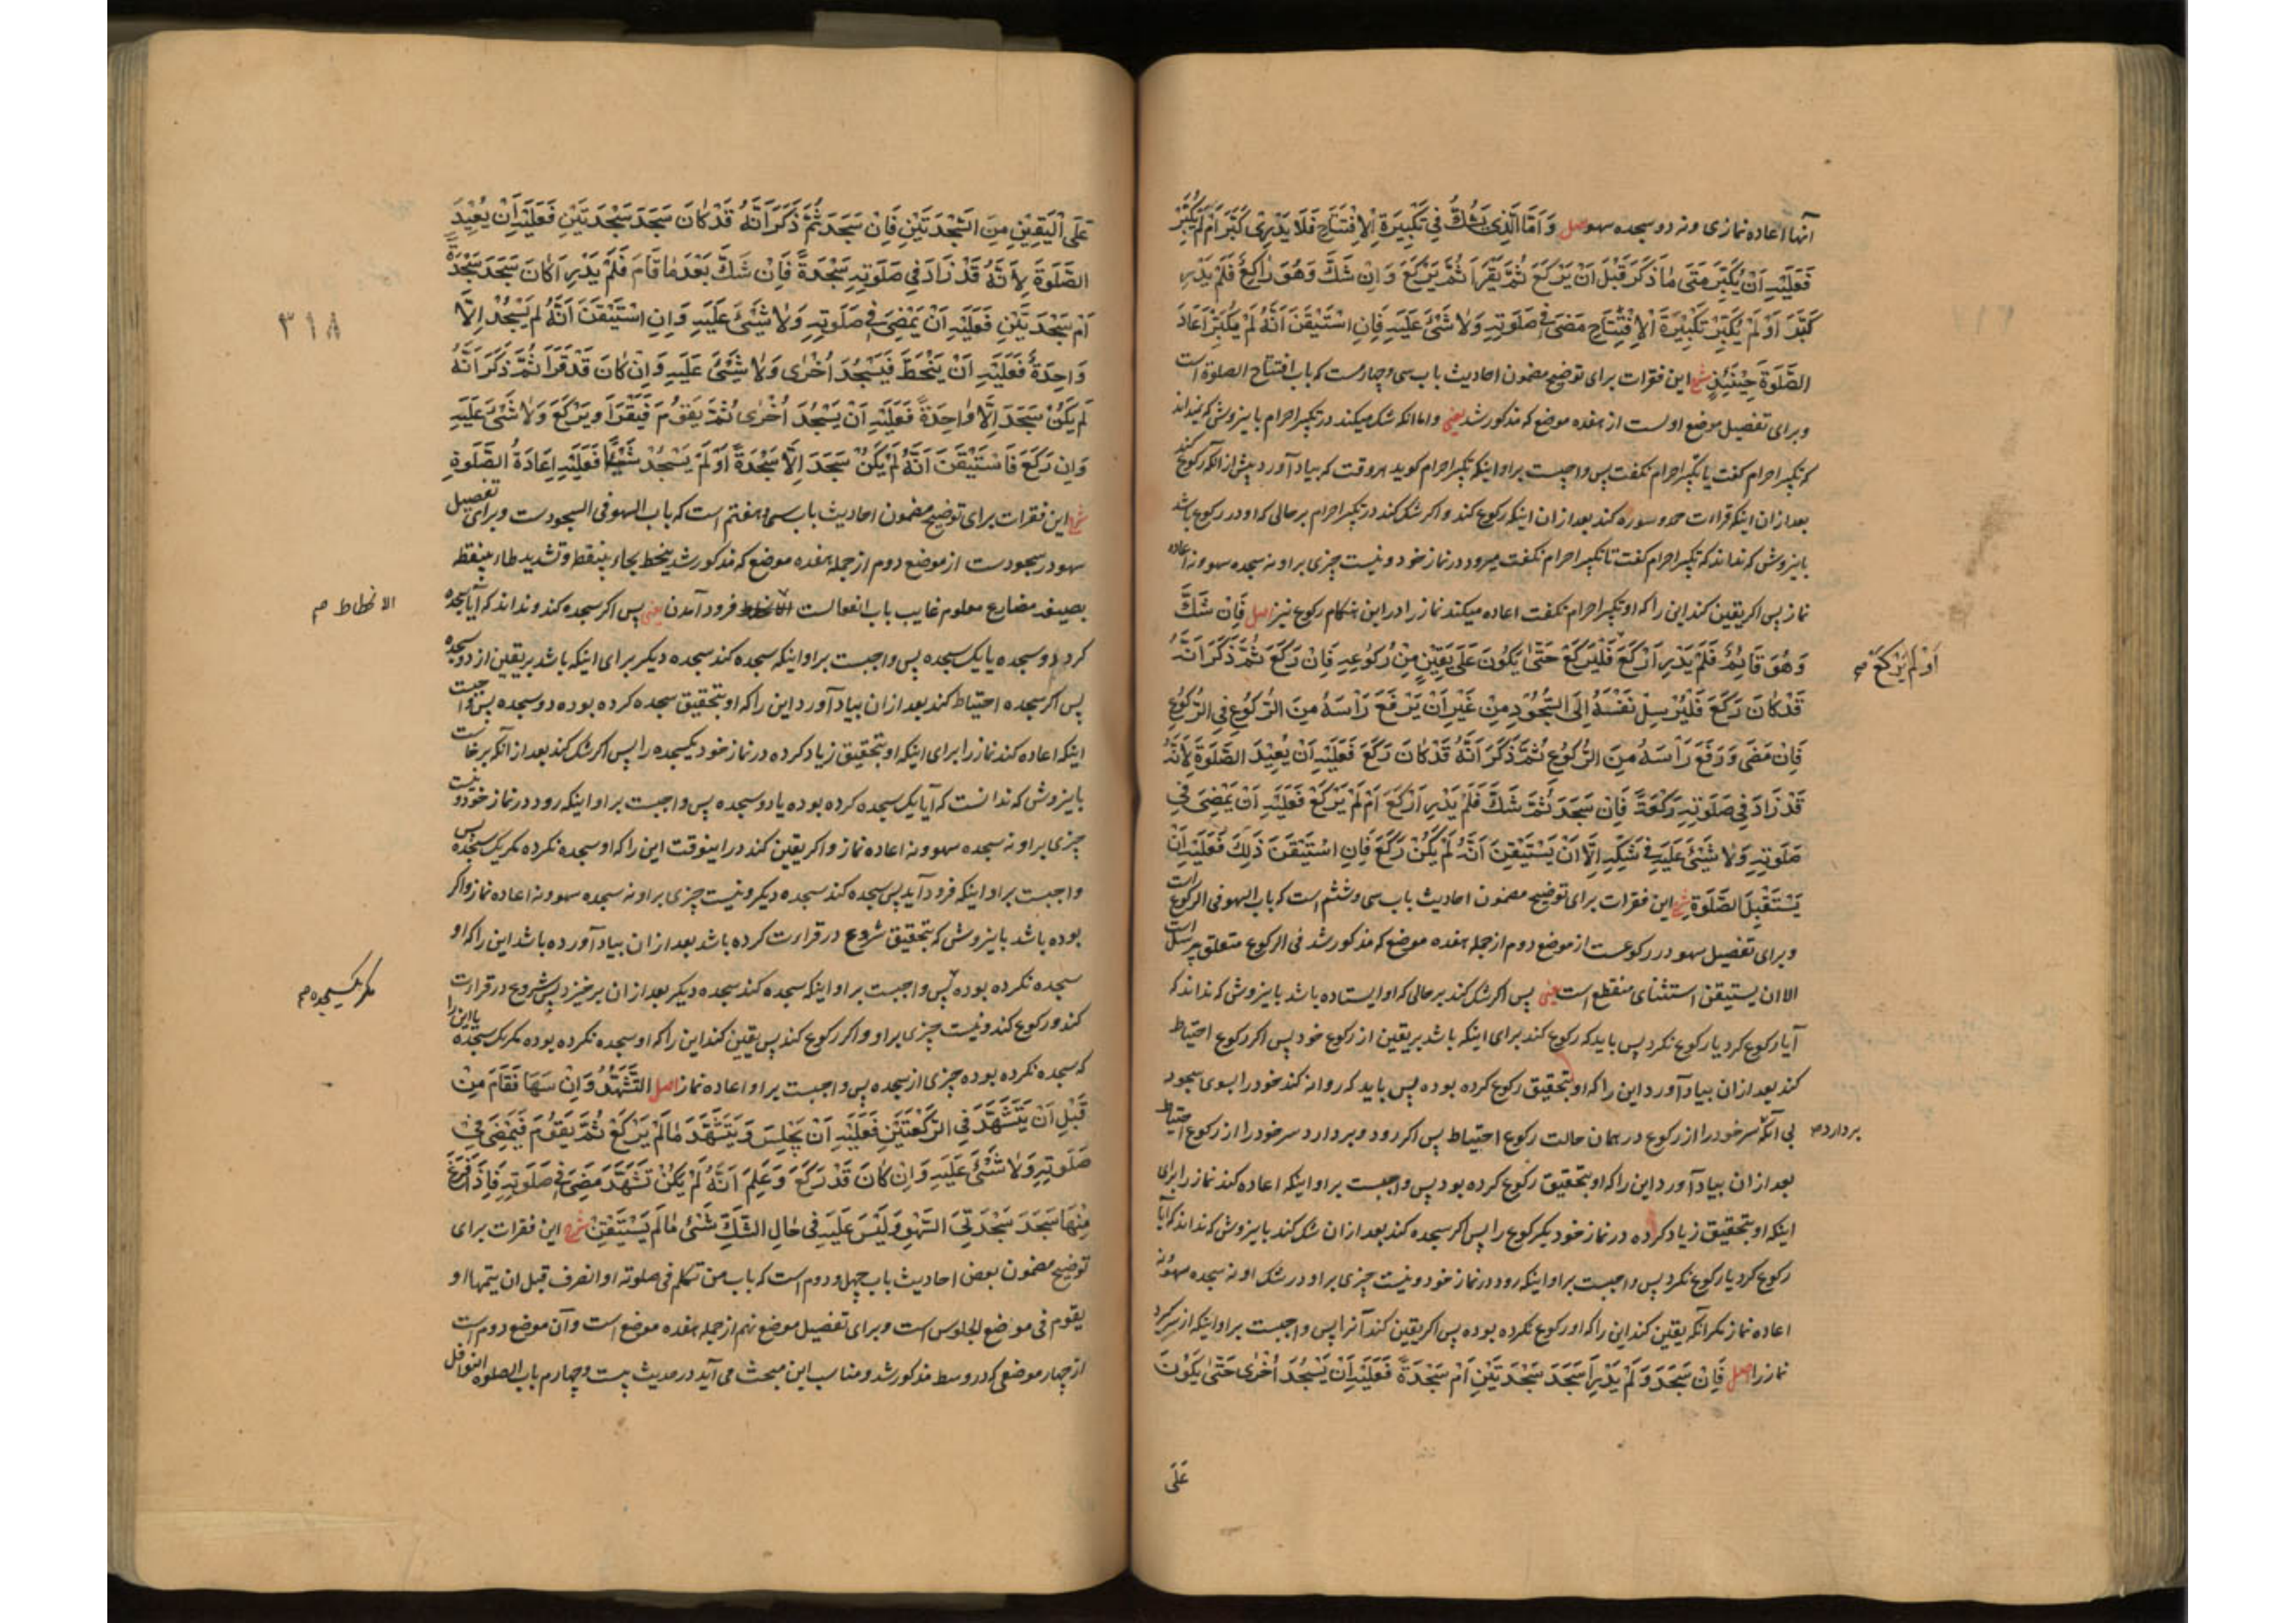 آنها اعاده نمازی و نه دو سجده سهو اصل وَ اَمَّا الَّذِی یَشُكُّ فِی تَكْبِیرَةِ الْاِفْتِتَاحِ فَلَا یَدْرِی كَبَّرَ اَمْ لَمْ یُكَبِّرْ
فَعَلَیْهِ اَنْ یُكَبِّرَ مَتَی مَا ذَكَرَ قَبْلَ اَنْ یَرْكَعَ ثُمَّ یَقْرَأَ ثُمَّ یَرْكَعَ وَ اِنْ شَكَّ وَهُوَ رَاكِعٌ فَلَمْ یَدْرِ
كَبَّرَ اَوْ لَمْ یُكَبِّرْ تَكْبِیْرَةَ الْاِفْتِتَاحِ مَضَی فِی صَلَوتِهِ وَلَا شَیْئَ عَلَیْهِ فَاِنِ اسْتَیْقَنَ اَنَّهُ لَمْ یُكَبِّرْ اَعَادَ
الصَّلَوةَ حِیْنَئِذٍ شرح این فقرات برای توضیح مضمون احادیث باب سی و چهارم ست که باب افتتاح الصلوة است
و برای تفصیل موضع اول ست از هفده موضع که مذکور شد یعنی و اما انکه شک میکند در تکبیر احرام باینروش که نمیداند
که تکبیر احرام کفت یا تکبیر احرام نکفت پس واجبست بر او اینکه تکبیر احرام کوید هر وقت که بیاد آورد پیش از انکه رکوع کند
بعد ازان اینکه قراءت حمد و سوره کند بعد ازان اینکه رکوع کند و اکر شک کند در تکبیر احرام بر حالی که او در رکوع باشد
باینروش که نداند که تکبیر احرام کفت تا تکبیر احرام نکفت میرود در نماز خود و نیست چیزی بر او نه سجده سهو و نه اعاده
نماز پس اکر یقین کند این را که او تکبیر احرام نکفت اعاده میکند نماز را در این هنکام رکوع نیز اصل فَاِنْ شَكَّ
وَهُوَ قَائِمٌ فَلَمْ یَدْرِ اَرَكَعَ فَلْیَرْكَعْ حَتّٰی یَكُونَ عَلَی یَقِیْنٍ مِنْ رُكُوعِهِ فَاِنْ رَكَعَ ثُمَّ ذَكَرَ اَنَّهُ
اَوْ لَمْ یَرْكَعْ صح
قَدْ كَانَ رَكَعَ فَلْیُرْسِلْ نَفْسَهُ اِلَی السُّجُودِ مِنْ غَیْرِ اَنْ یَرْفَعَ رَاْسَهُ مِنَ الرُّكُوعِ فِی الرُّكُوعِ
فَاِنْ مَضَی وَ رَفَعَ رَاْسَهُ مِنَ الرُّكُوعِ ثُمَّ ذَكَرَ اَنَّهُ قَدْ كَانَ رَكَعَ فَعَلَیْهِ اَنْ یُعِیْدَ الصَّلَوةَ لِاَنَّهُ
قَدْ زَادَ فِی صَلَوتِهِ رَكْعَةً فَاِنْ سَجَدَ ثُمَّ شَكَّ فَلَمْ یَدْرِ اَرَكَعَ اَمْ لَمْ یَرْكَعْ فَعَلَیْهِ اَنْ یَمْضِیَ فِی
صَلَوتِهِ وَلَا شَیْئَ عَلَیْهِ فِی شَكِّهِ اِلَّا اَنْ یَسْتَیْقِنَ اَنَّهُ لَمْ یَكُنْ رَكَعَ فَاِنِ اسْتَیْقَنَ ذَلِكَ فَعَلَیْهِ اَنْ
یَسْتَقْبِلَ الصَّلَوةَ شرح این فقرات برای توضیح مضمون احادیث باب سی و ششم است که باب السهو فی الرکوع است
و برای تفصیل سهو در رکوعست از موضع دوم از جمله هفده موضع که مذکور شد فی الرکوع متعلق بیرسل است
الا ان یستیقن استثنای منقطع است یعنی پس اکر شک کند بر حالی که او ایستاده باشد باینروش که نداند که
آیا رکوع کرد یا رکوع نکرد پس باید که رکوع کند برای اینکه باشد بر یقین از رکوع خود پس اکر رکوع احتیاط
کند بعد ازان بیاد آورد این را که او بتحقیق رکوع کرده بوده پس باید که روانه کند خود را بسوی سجود
بی آنکه سر خود را از رکوع در همان حالت رکوع احتیاط پس اکر رود و بردارد سر خود را از رکوع احتیاط
بردارد صح
بعد ازان بیاد آورد این را که او بتحقیق رکوع کرده بود پس واجبست بر او اینکه اعاده کند نماز را برای
اینکه او بتحقیق زیاد کرده در نماز خود یکرکوع را پس اکر سجده کند بعد ازان شک کند باینروش که نداند که آیا
رکوع کرد یا رکوع نکرد پس واجبست بر او اینکه رود در نماز خود و نیست چیزی بر او در شک او نه سجده سهو و نه
اعاده نماز مکر آنکه یقین کند این را که او رکوع نکرده بوده پس اکر یقین کند آنرا پس واجبست بر او اینکه از سر کیرد
نماز را اصل فَاِنْ سَجَدَ وَ لَمْ یَدْرِ اَسَجَدَ سَجْدَتَیْنِ اَمْ سَجْدَةً فَعَلَیْهِ اَنْ یَسْجُدَ اُخْرٰی حَتّٰی یَكُونَ
عَلَی
عَلَی الْیَقِیْنِ مِنَ السَّجْدَتَیْنِ فَاِنْ سَجَدَ ثُمَّ ذَكَرَ اَنَّهُ قَدْ كَانَ سَجَدَ سَجْدَتَیْنِ فَعَلَیْهِ اَنْ یُعِیْدَ
الصَّلَوةَ لِاَنَّهُ قَدْ زَادَ فِی صَلَوتِهِ سَجْدَةً فَاِنْ شَكَّ بَعْدَ مَا قَامَ فَلَمْ یَدْرِ اَكَانَ سَجَدَ سَجْدَةً
اَمْ سَجْدَتَیْنِ فَعَلَیْهِ اَنْ یَمْضِیَ فِی صَلَوتِهِ وَلَا شَیْئَ عَلَیْهِ وَاِنِ اسْتَیْقَنَ اَنَّهُ لَمْ یَسْجُدْ اِلَّا
٣١٨
وَاحِدَةً فَعَلَیْهِ اَنْ یَنْحَطَّ فَیَسْجُدَ اُخْرٰی وَلَا شَیْئَ عَلَیْهِ وَاِنْ كَانَ قَدْ قَرَأَ ثُمَّ ذَكَرَ اَنَّهُ
لَمْ یَكُنْ سَجَدَ اِلَّا وَاحِدَةً فَعَلَیْهِ اَنْ یَسْجُدَ اُخْرٰی ثُمَّ یَقُوْمَ فَیَقْرَأَ وَیَرْكَعَ وَلَا شَیْئَ عَلَیْهِ
وَاِنْ رَكَعَ فَاسْتَیْقَنَ اَنَّهُ لَمْ یَكُنْ سَجَدَ اِلَّا سَجْدَةً اَوْ لَمْ یَسْجُدْ شَیْئًا فَعَلَیْهِ اِعَادَةُ الصَّلَوةِ
شرح این فقرات برای توضیح مضمون احادیث باب سی و هفتم است که باب السهو فی السجودست و برای تفصیل
سهو در سجودست از موضع دوم از جمله هفده موضع که مذکور شد ینحط بحاء بینقطه و تشدید طاء بینقطه
بصیغه مضارع معلوم غایب باب انفعالست فرود آمدن یعنی پس اکر سجده کند و نداند که آیا سجده
الانحطاط صح
کرد دو سجده یا یک سجده پس واجبست بر او اینکه سجده کند سجده دیکر برای اینکه باشد بر یقین از دو سجده
پس اکر سجده احتیاط کند بعد ازان بیاد آورد این را که او بتحقیق سجده کرده بوده دو سجده پس واجبست
اینکه اعاده کند نماز را برای اینکه او بتحقیق زیاد کرده در نماز خود یکسجده را پس اکر شک کند بعد از آنکه برخاست
باینروش که ندانست که آیا یک سجده کرده بوده یا دو سجده پس واجبست بر او اینکه رود در نماز خود و نیست
چیزی بر او نه سجده سهو و نه اعاده نماز و اکر یقین کند در اینوقت این را که او سجده نکرده مکر یک سجده پس
واجبست بر او اینکه فرود آید پس سجده کند سجده دیکر و نیست چیزی بر او نه سجده سهو و نه اعاده نماز و اکر
بوده باشد باینروش که بتحقیق شروع در قراءت کرده باشد بعد ازان بیاد آورده باشد این را که او
سجده نکرده بوده پس واجبست بر او اینکه سجده کند سجده دیکر بعد ازان برخیزد پس شروع در قراءت
مکر یکسجده صح
کند و رکوع کند و نیست چیزی بر او و اکر رکوع کند پس یقین کند این را که او سجده نکرده بوده مکر یک سجده یا این را
که سجده نکرده بوده چیزی از سجده پس واجبست بر او اعاده نماز اصل التَّشَهُّدُ وَاِنْ سَهَا فَقَامَ مِنْ
قَبْلِ اَنْ یَتَشَهَّدَ فِی الرَّكْعَتَیْنِ فَعَلَیْهِ اَنْ یَجْلِسَ وَ یَتَشَهَّدَ مَا لَمْ یَرْكَعْ ثُمَّ یَقُوْمَ فَیَمْضِیَ فِی
صَلَوتِهِ وَلَا شَیْئَ عَلَیْهِ وَاِنْ كَانَ قَدْ رَكَعَ وَعَلِمَ اَنَّهُ لَمْ یَكُنْ تَشَهَّدَ مَضَی فِی صَلَوتِهِ فَاِذَا فَرَغَ
مِنْهَا سَجَدَ سَجْدَتَیِ السَّهْوِ وَلَیْسَ عَلَیْهِ فِی حَالِ الشَّكِّ شَیْئٌ مَا لَمْ یَسْتَیْقِنْ شرح این فقرات برای
توضیح مضمون بعض احادیث باب چهل و دوم است که باب من تکلم فی صلوته او انصرف قبل ان یتمها او
یقوم فی موضع الجلوس است و برای تفصیل موضع نهم از جمله هفده موضع است و آن موضع دوم است
از چهار موضعی که در وسط مذکور شد و مناسب این مبحث می آید در حدیث بیست و چهارم باب الصلوة النوافل